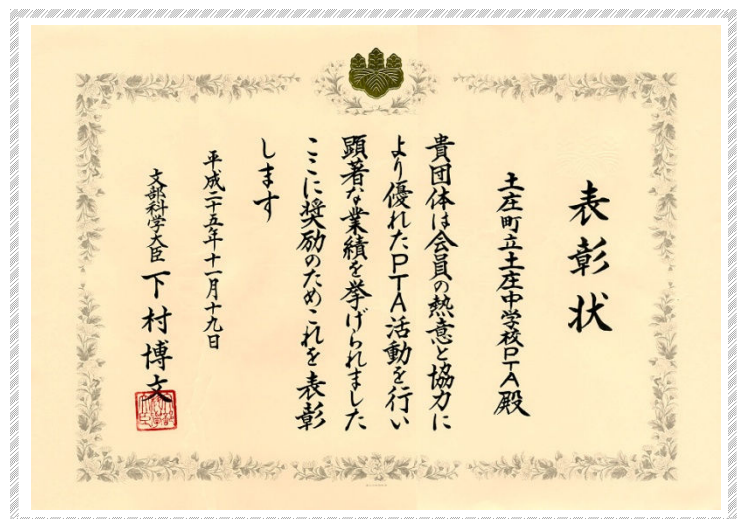 表彰状
土庄町立土庄中学校PTA殿
貴団体は会員の熱意と協力に
より優れたPTA活動を行い
顕著な業績を挙げられました
ここに奨励のためこれを表彰
します
平成二十五年十一月十九日
文部科学大臣 下村博文